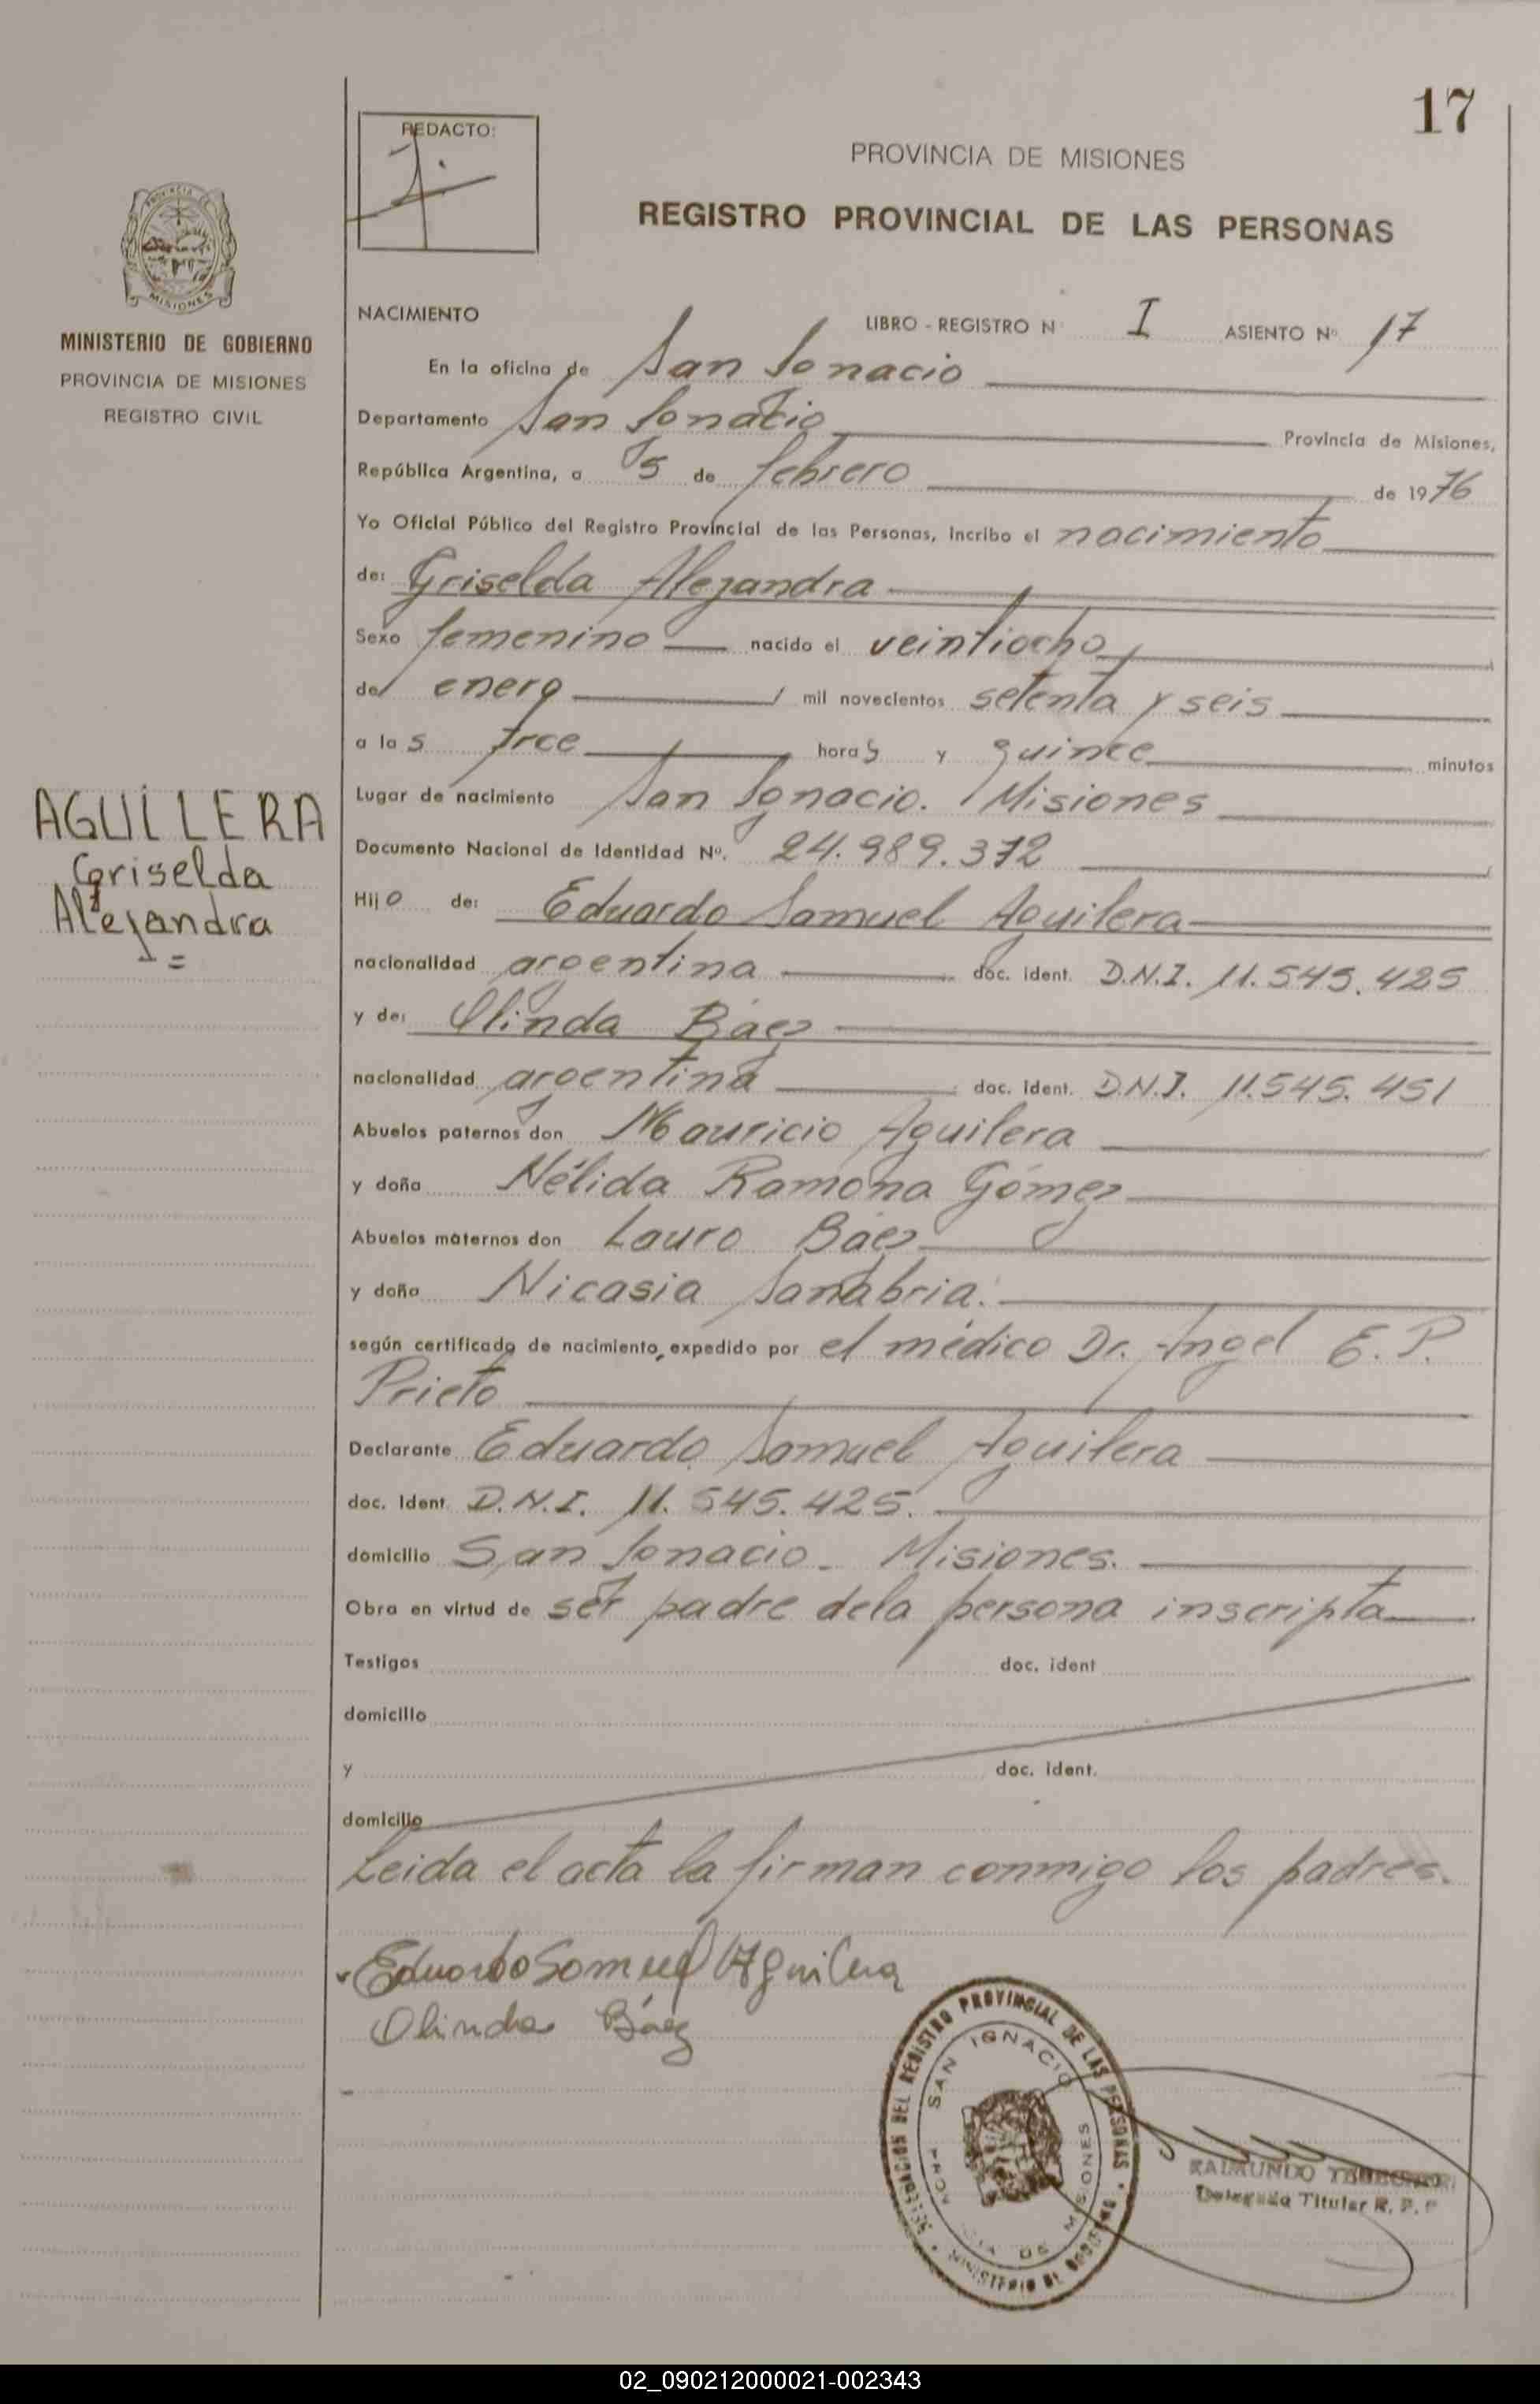 17
REDACTO:
PROVINCIA DE MISIONES
REGISTRO PROVINCIAL DE LAS PERSONAS
PROVINCIA DE
MISIONES
MINISTERIO DE GOBIERNO
PROVINCIA DE MISIONES
REGISTRO CIVIL
NACIMIENTO LIBRO - REGISTRO N I ASIENTO Nº 17
En la oficina de San Ignacio
Departamento San Ignacio Provincia de Misiones,
República Argentina, a 5 de febrero de 1976
Yo Oficial Público del Registro Provincial de las Personas, incribo el nacimiento
de: Griselda Alejandra
Sexo femenino nacido el veintiocho
de enero mil novecientos setenta y seis
a las trce horas y quince minutos
Lugar de nacimiento San Ignacio. Misiones
AGUILERA
Griselda
Alejandra
Documento Nacional de Identidad Nº. 24.989.372
Hijo de: Eduardo Samuel Aguilera
nacionalidad argentina doc. ident. D.N.I. 11.545.425
y de: Olinda Báez
nacionalidad argentina doc. ident. D.N.I. 11.545.451
Abuelos paternos don Mauricio Aguilera
y doña Nélida Ramona Gómez
Abuelos maternos don Lauro Báez
y doña Nicasia Sanabria.
según certificado de nacimiento, expedido por el médico Dr. Angel E. P.
Prieto
Declarante Eduardo Samuel Aguilera
doc. Ident. D.N.I. 11.545.425.
domicilio San Ignacio. Misiones.
Obra en virtud de ser padre dela persona inscripta
Testigos doc. ident
domicilio
y doc. ident.
domicilio
Leida el acta la firman conmigo los padres.
Eduardo Samuel Aguilera
Olinda Báez
DELEGACION DEL REGISTRO PROVINCIAL DE LAS PERSONAS
MINISTERIO DE GOBIERNO
SAN IGNACIO
PROVINCIA DE MISIONES
RAIMUNDO
Delegado Titular R. P. P
02_090212000021-002343